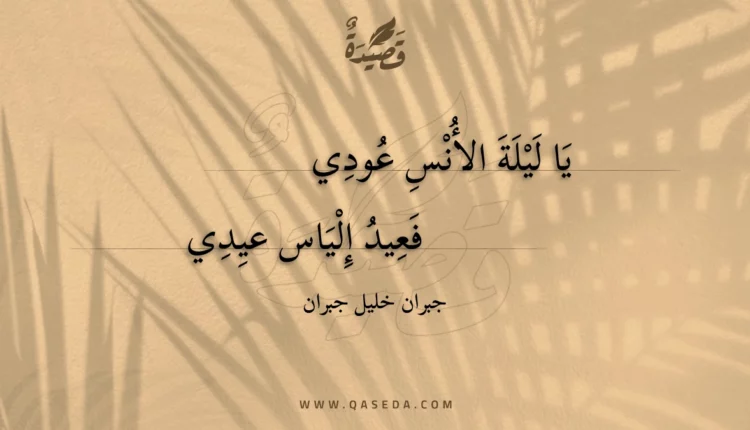 قَصِيْدَةٌ
يَا لَيْلَةَ الأُنْسِ عُودِي
فَعِيدُ إِلْيَاس عيِدِي
جبران خليل جبران
WWW.QASEDA.COM